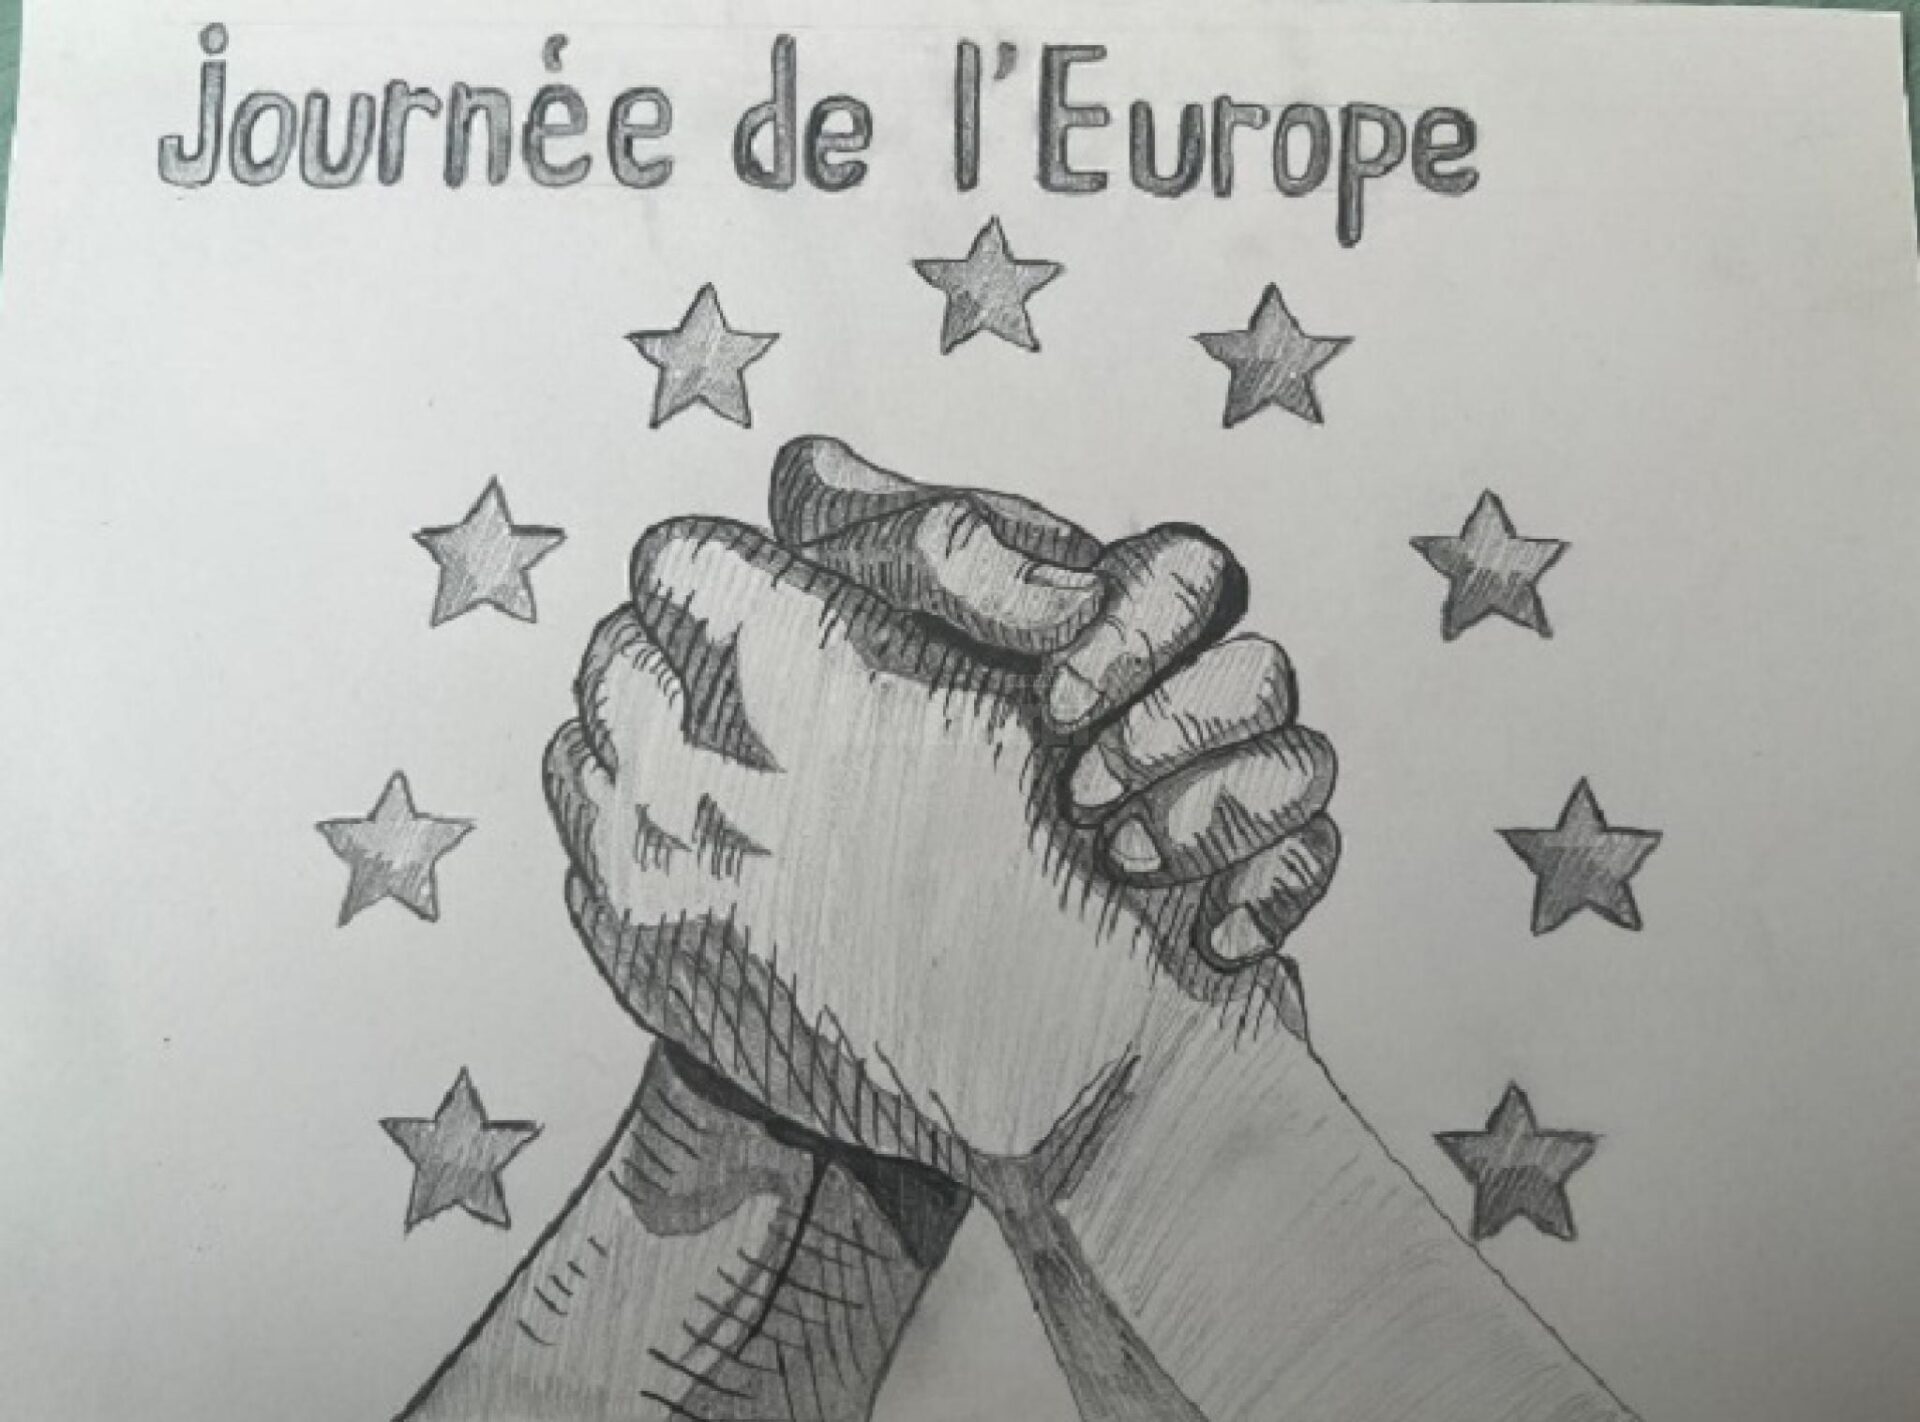 journée de l'Europe